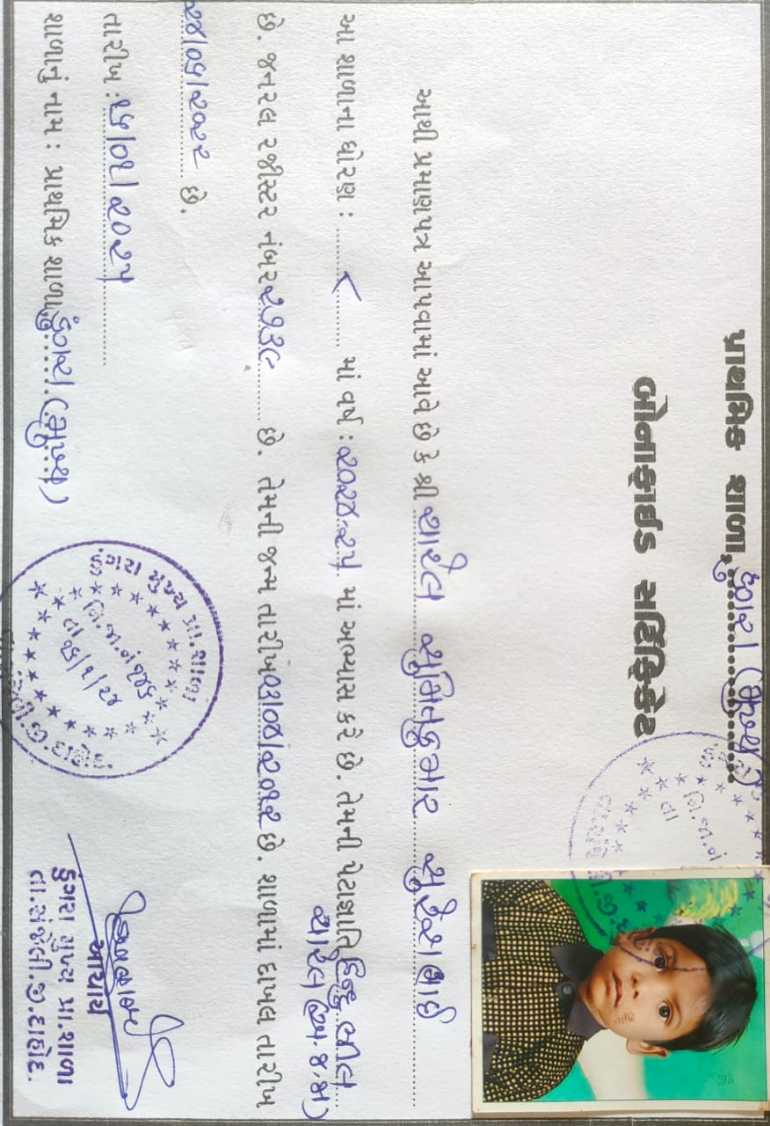 પ્રાથમિક શાળા, ડુંગરા (મુખ્ય)
બોનાફાઈડ સર્ટિફિકેટ
આથી પ્રમાણપત્ર આપવામાં આવે છે કે શ્રી ચારેલ સુમિતકુમાર સુરેશભાઈ
આ શાળાના ધોરણ : ૮ માં વર્ષ : ૨૦૨૪-૨૫ માં અભ્યાસ કરે છે. તેમની પેટાજ્ઞાતિ હિન્દુ ભીલ
ચારેલ (અ.જ.જા)
છે. જનરલ રજીસ્ટર નંબર ૨૭૩૮ છે. તેમની જન્મ તારીખ ૦૩/૦૪/૨૦૧૨ છે. શાળામાં દાખલ તારીખ
૨૪/૦૫/૨૦૨૨ છે.
તારીખ : ૨૫/૦૧/૨૦૨૫
શાળાનું નામ : પ્રાથમિક શાળા ડુંગરા (મુખ્ય)
ડુંગરા મુખ્ય પ્રા.શાળા
આચાર્ય
ડુંગરા મુખ્ય પ્રા.શાળા
તા.સંજેલી.જી.દાહોદ.